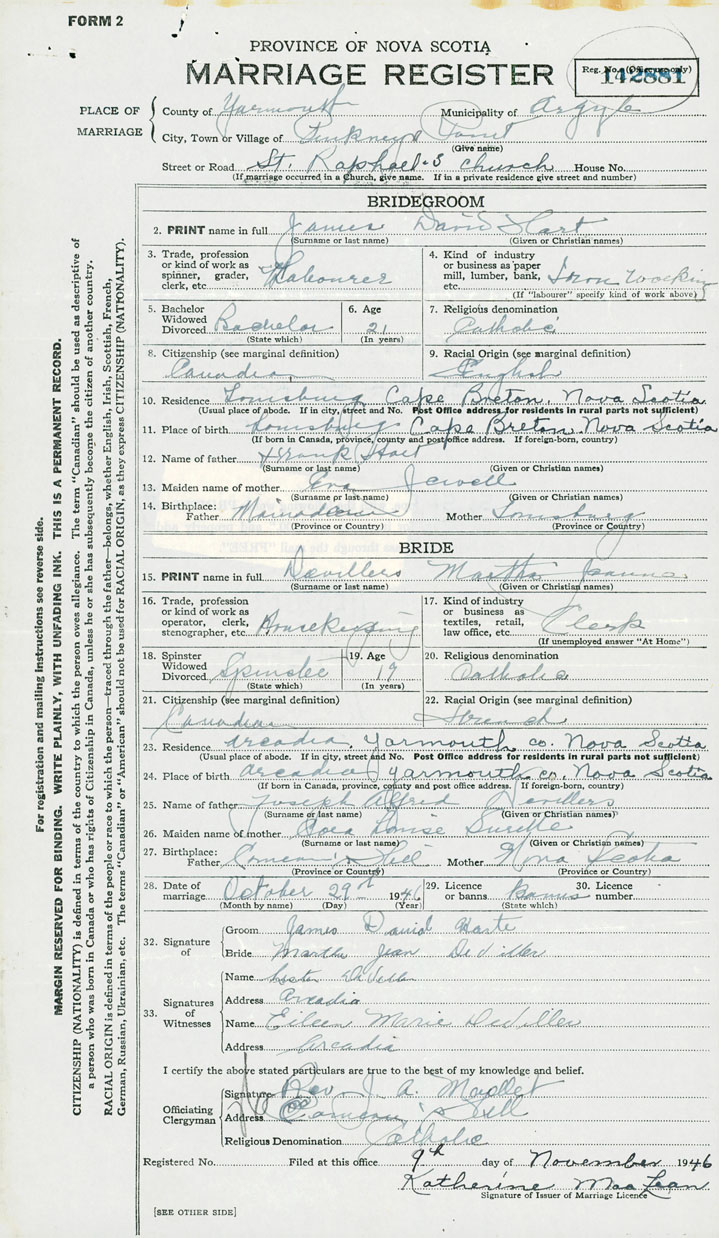 FORM 2
PROVINCE OF NOVA SCOTIA
MARRIAGE REGISTER
Reg. No. (Office use only)
142881
PLACE OF MARRIAGE
County of Yarmouth Municipality of Argyle
City, Town or Village of Pinkneys Point
(Give name)
Street or Road St. Raphael's church House No.
(If marriage occurred in a Church, give name. If in a private residence give street and number)
BRIDEGROOM
2. PRINT name in full James David Hart
(Surname or last name) (Given or Christian names)
3. Trade, profession or kind of work as spinner, grader, clerk, etc. Labourer
4. Kind of industry or business as paper mill, lumber, bank, etc. Iron Working
(If "labourer" specify kind of work above)
5. Bachelor Widowed Divorced Bachelor
(State which)
6. Age 21
(In years)
7. Religious denomination
Catholic
8. Citizenship (see marginal definition)
Canadian
9. Racial Origin (see marginal definition)
English
10. Residence Louisburg Cape Breton, Nova Scotia
(Usual place of abode. If in city, street and No. Post Office address for residents in rural parts not sufficient)
11. Place of birth Louisburg Cape Breton, Nova Scotia
(If born in Canada, province, county and post office address. If foreign-born, country)
12. Name of father Frank Hart
(Surname or last name) (Given or Christian names)
13. Maiden name of mother Eva Jewell
(Surname or last name) (Given or Christian names)
14. Birthplace: Father Mainadieu Mother Louisburg
(Province or Country) (Province or Country)
BRIDE
15. PRINT name in full Devillers Martha Jeanne
(Surname or last name) (Given or Christian names)
16. Trade, profession or kind of work as operator, clerk, stenographer, etc. Housekeeping
17. Kind of industry or business as textiles, retail, law office, etc. Clerk
(If unemployed answer "At Home")
18. Spinster Widowed Divorced Spinster
(State which)
19. Age 19
(In years)
20. Religious denomination
Catholic
21. Citizenship (see marginal definition)
Canadian
22. Racial Origin (see marginal definition)
French
23. Residence Arcadia, Yarmouth co. Nova Scotia
(Usual place of abode. If in city, street and No. Post Office address for residents in rural parts not sufficient)
24. Place of birth Arcadia Yarmouth co. Nova Scotia
(If born in Canada, province, county and post office address. If foreign-born, country)
25. Name of father Joseph Alfred Devillers
(Surname or last name) (Given or Christian names)
26. Maiden name of mother Cora Louise Surette
(Surname or last name) (Given or Christian names)
27. Birthplace: Father Comeau's Hill Mother Nova Scotia
(Province or Country) (Province or Country)
28. Date of marriage October 29th 1946
(Month by name) (Day) (Year)
29. Licence or banns Banns
(State which)
30. Licence number
32. Signature of
Groom James David Harte
Bride Martha Jean DeViller
33. Signatures of Witnesses
Name Lester DeViller
Address Arcadia
Name Eileen Marie DeViller
Address Arcadia
I certify the above stated particulars are true to the best of my knowledge and belief.
Officiating Clergyman
Signature Rev. J. A. Maillet
Address Comeau's Hill
Religious Denomination Catholic
Registered No. Filed at this office 9th day of November 1946
Katherine MacLean
Signature of Issuer of Marriage Licence
[SEE OTHER SIDE]
For registration and mailing instructions see reverse side.
MARGIN RESERVED FOR BINDING. WRITE PLAINLY, WITH UNFADING INK. THIS IS A PERMANENT RECORD.
CITIZENSHIP (NATIONALITY) is defined in terms of the country to which the person owes allegiance. The term "Canadian" should be used as descriptive of
a person who was born in Canada or who has rights of Citizenship in Canada, unless he or she has subsequently become the citizen of another country.
RACIAL ORIGIN is defined in terms of the people or race to which the person—traced through the father—belongs, whether English, Irish, Scottish, French,
German, Russian, Ukrainian, etc. The terms "Canadian" or "American" should not be used for RACIAL ORIGIN, as they express CITIZENSHIP (NATIONALITY).